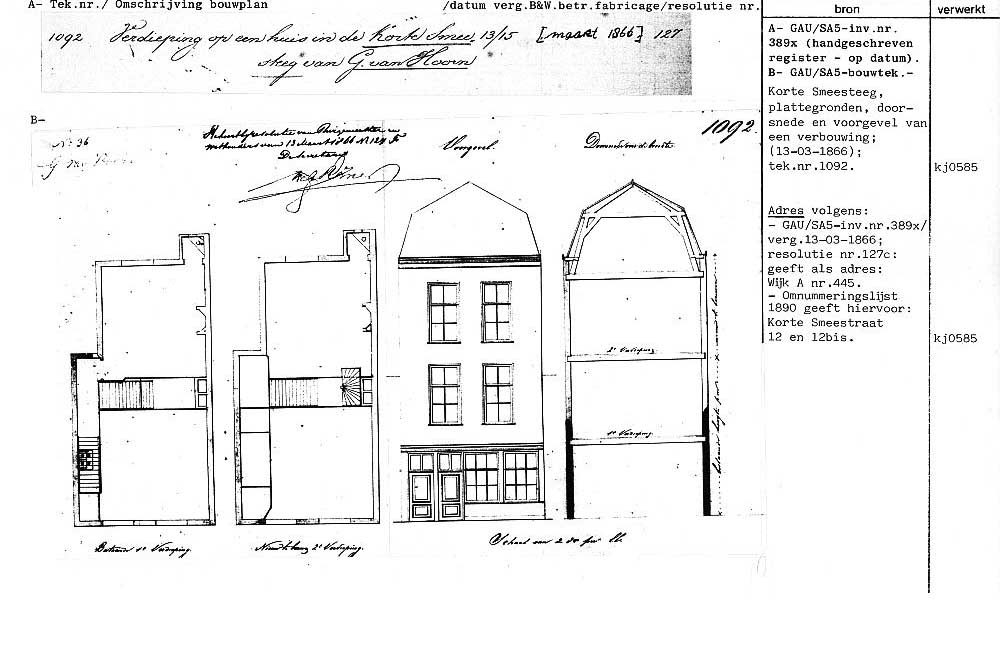 A- Tek.nr./ Omschrijving bouwplan /datum verg.B&W.betr.fabricage/resolutie nr.
1092 Verdieping op een huis in de Korte Smee, 13/15 [maart 1866] 127
steeg van G. van Hoorn
B-
No 36
G van
Behoort bij resolutie van Burgemeester en
Wethouders van 13 Maart 1866 N 127 F
De Secretaris
Voorgevel.
Doorsnede
1092.
2e Verdieping
1e Verdieping
Bestaande 1e Verdieping.
Nieuw te 2e Verdieping.
Schaal van 2 do per El.
bron
verwerkt
A- GAU/SA5-inv.nr.
389x (handgeschreven
register - op datum).
B- GAU/SA5-bouwtek.-
Korte Smeesteeg,
plattegronden, door-
snede en voorgevel van
een verbouwing;
(13-03-1866);
tek.nr.1092.
kj0585
Adres volgens:
- GAU/SA5-inv.nr.389x/
verg.13-03-1866;
resolutie nr.127c:
geeft als adres:
Wijk A nr.445.
- Omnummeringslijst
1890 geeft hiervoor:
Korte Smeestraat
12 en 12bis.
kj0585